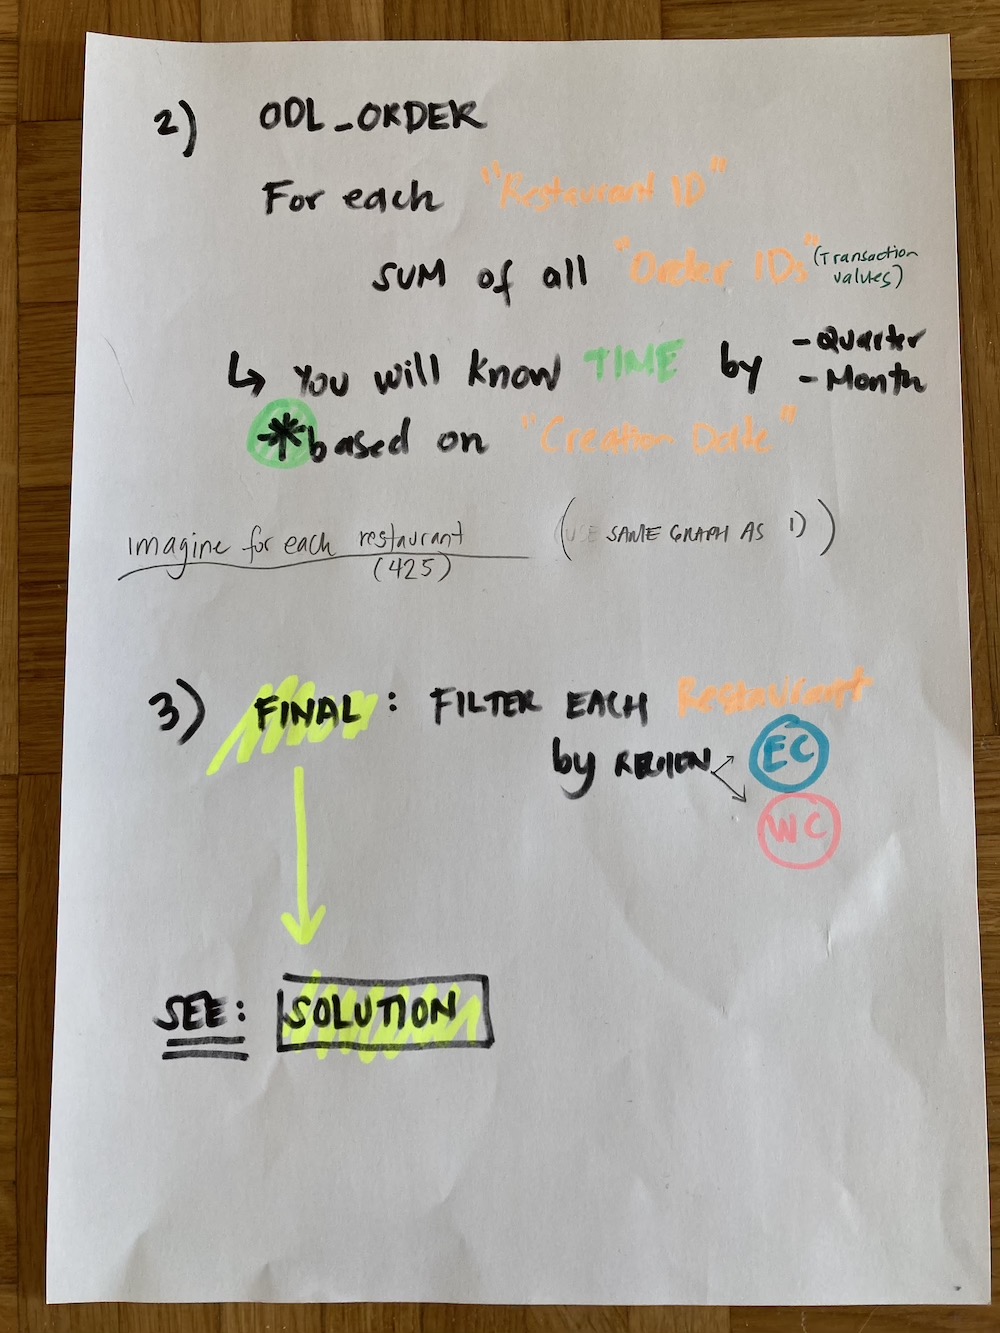 2) ODL_ORDER
For each "Restaurant ID"
SUM of all "Order IDs" (Transaction values)
↳ You will know TIME by - Quarter
- Month
* based on "Creation Date"
imagine for each restaurant (USE SAME GRAPH AS 1))
(425)
3) FINAL : FILTER EACH Restaurant
by REGION EC
WC
SEE: SOLUTION